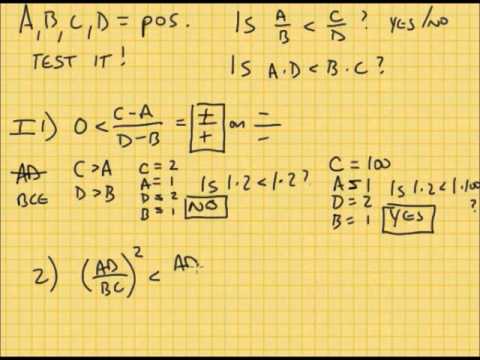 A, B, C, D = pos. Is A/B < C/D? YES/NO
TEST IT! Is A·D < B·C?
I 1) 0 < (C-A)/(D-B) = +/+ or -/-
AD C>A
BCE D>B
C=2
A=1
D=2
B=1
Is 1·2 < 1·2?
NO
C=100
A=1
D=2
B=1
Is 1·2 < 1·100
?
YES
2) (AD/BC)² < AD